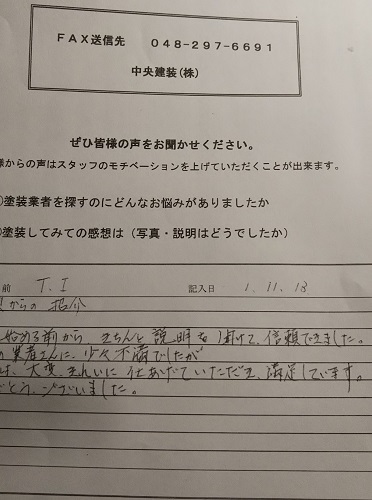 FAX送信先 048-297-6691
中央建装(株)
ぜひ皆様の声をお聞かせください。
様からの声はスタッフのモチベーションを上げていただくことが出来ます。
塗装業者を探すのにどんなお悩みがありましたか
塗装してみての感想は（写真・説明はどうでしたか）
前 T.I 記入日 1.11.13
からの紹介
始める前からきちんと説明を受けて、信頼できました。
業者さんに、少々不満でしたが
大変きれいに仕あげていただき、満足しています。
とう、ございました。